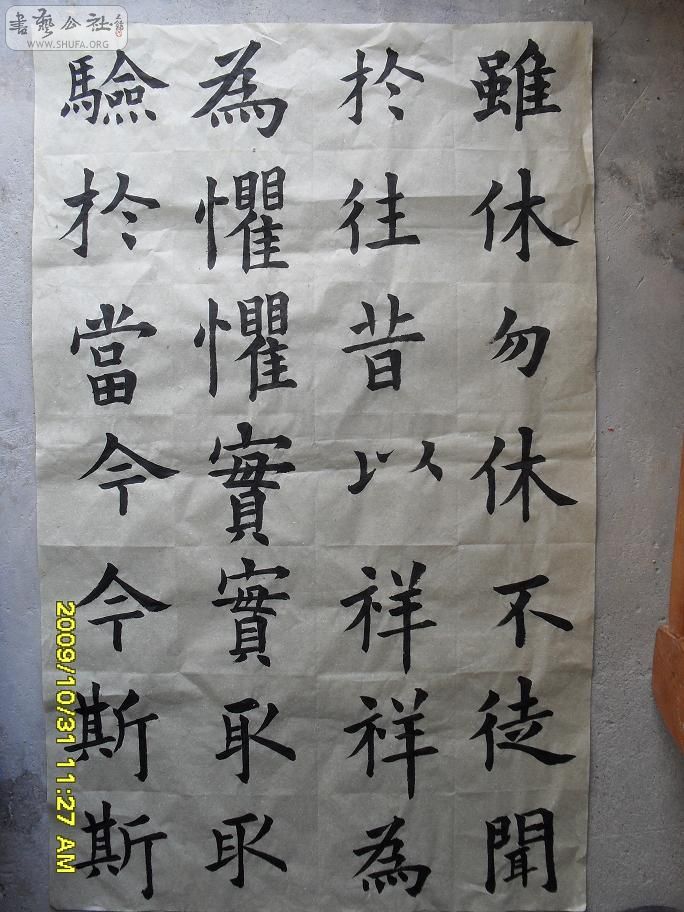 雖休勿休不徒聞
於往昔以祥祥為
為懼懼實實取取
驗於當今今斯斯
書藝公社
WWW.SHUFA.ORG
2009/10/31 11:27 AM